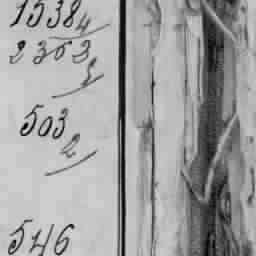 1538 4
2363
2
503
2
546